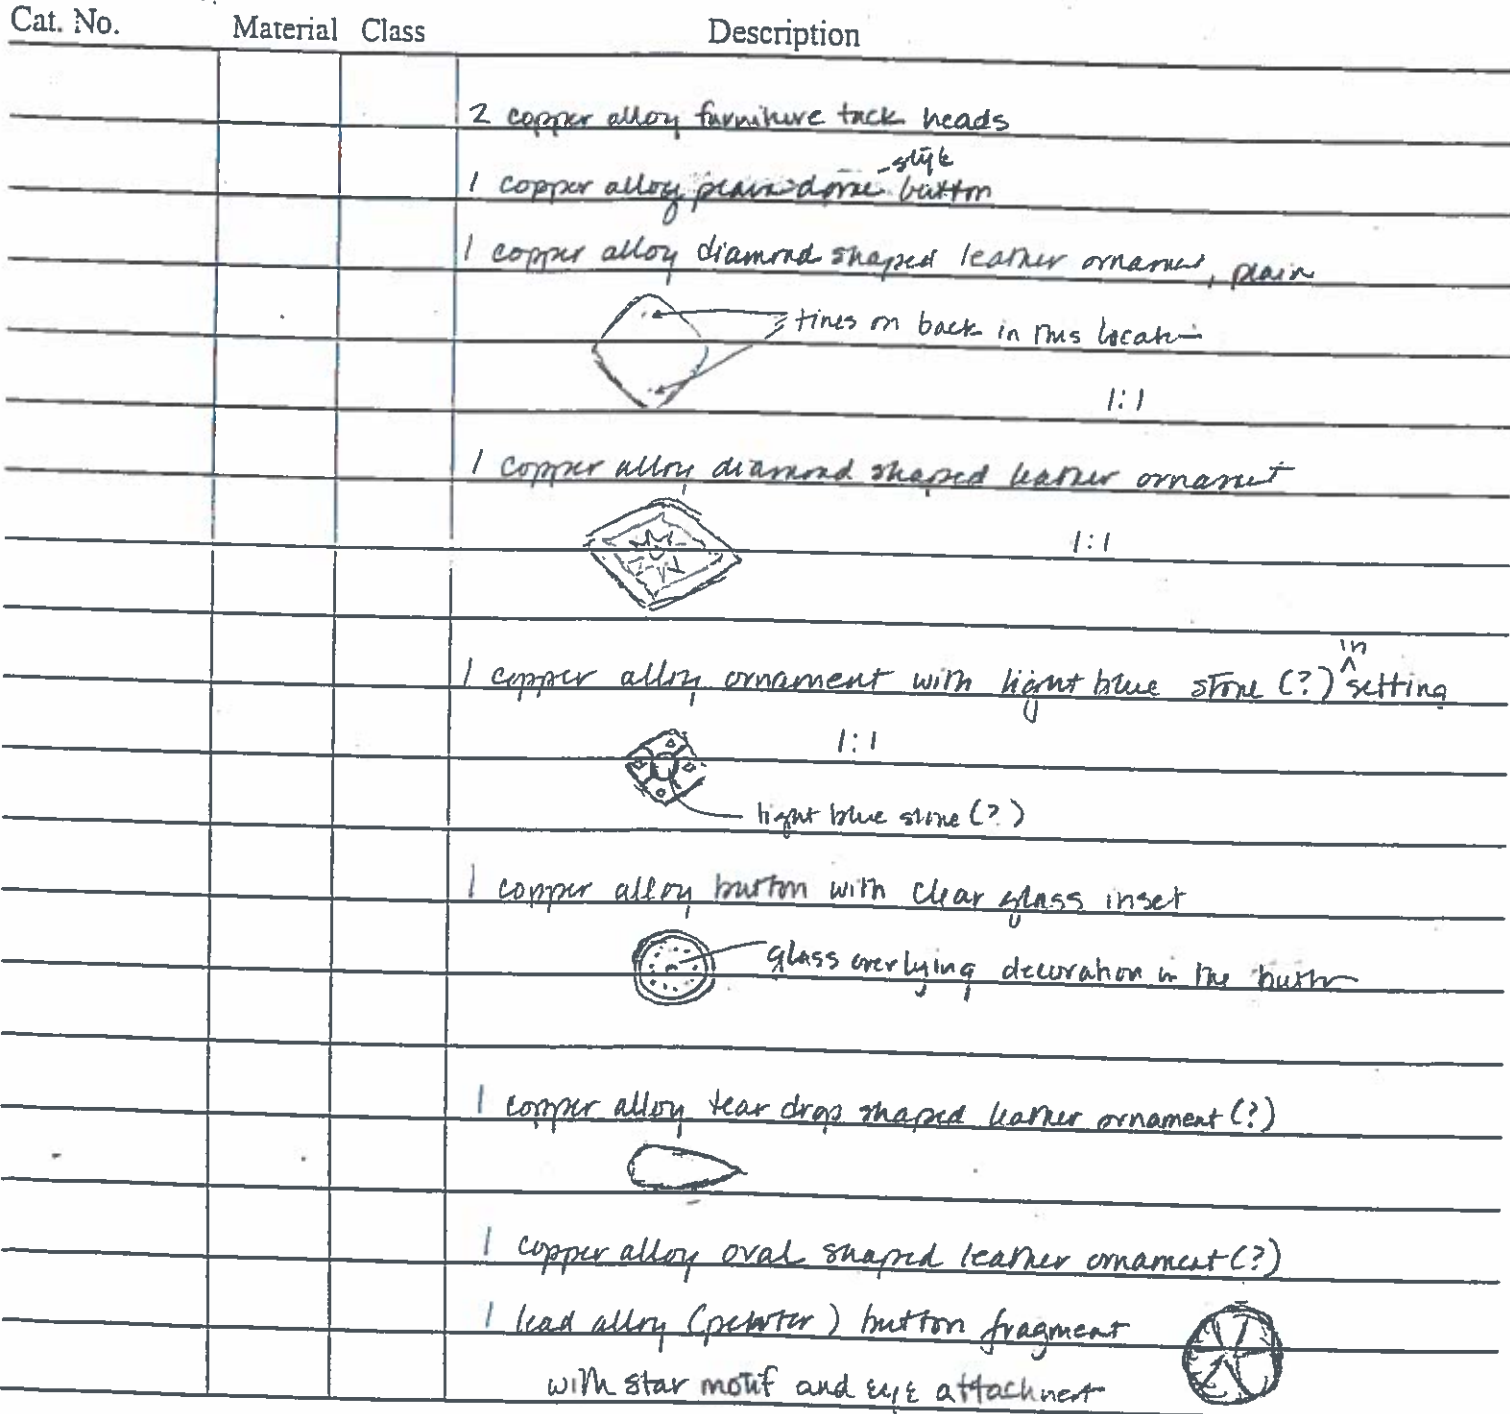 Cat. No. Material Class Description
2 copper alloy furniture tack heads
-style
1 copper alloy plain dome button
1 copper alloy diamond shaped leather ornament, plain
tines on back in this location
1:1
1 copper alloy diamond shaped leather ornament
1:1
in
1 copper alloy ornament with light blue stone (?) ^ setting
1:1
light blue stone (?)
1 copper alloy button with clear glass inset
glass overlying decoration in the button
1 copper alloy tear drop shaped leather ornament (?)
1 copper alloy oval shaped leather ornament (?)
1 lead alloy (pewter) button fragment
with star motif and eye attachment